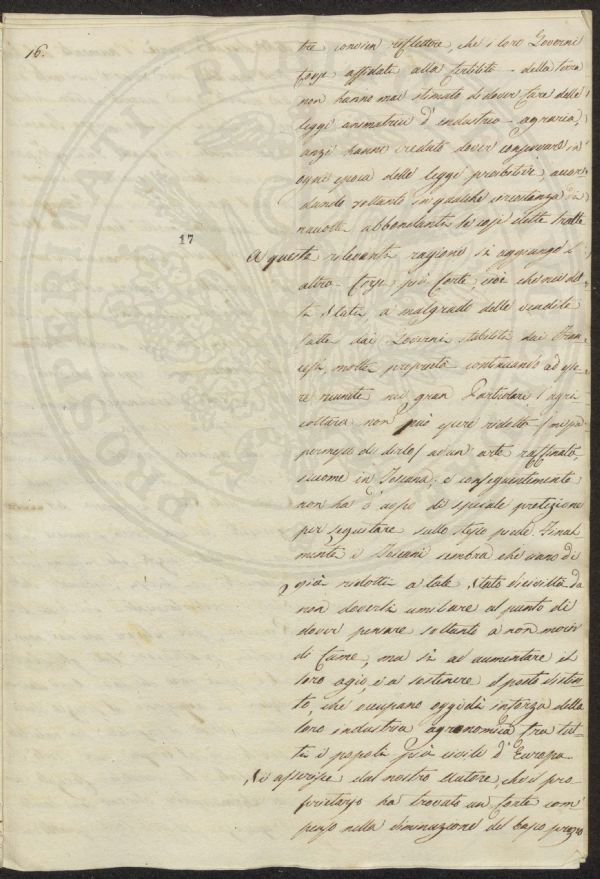 16.
tre convien reflettere, che i loro Governi
forse affidati alla fertilità della terra
non hanno mai stimato di dover fare delle
leggi animatrici d'industria agraria,
anzi hanno creduto dover conservare in
ogni epoca delle leggi proibitive, accor
dando soltanto in qualche circostanza di
raccolte abbondanti le così dette tratte
17
A queste rilevanti ragioni si aggiunge l'
altra forse più forte, cioè che nei det
ti Stati a malgrado delle vendite
fatte dai Governi stabiliti dai Fran
cesi, molte proprietà continuando ad esse
re riunite nei gran Particolari l'agri
coltura non può essere ridotta (mi sia
permesso di dirlo) ad un arte raffinata,
siccome in Toscana, e conseguentemente
non ha d'uopo di speciale protezione
per seguitare sullo stesso piede. Final
mente i Toscani sembra che siano di
già ridotti a tale stato di civiltà da
non doversi umiliare al punto di
dover pensare soltanto a non morir
di fame, ma sì ad aumentare il
loro agio, e a sostenere il posto distin
to, che occupano oggidì in forza della
loro industria agronomica fra tut
ti i popoli più civili d'Europa.
Si asserisce dal nostro Autore, che il pro
prietario ha trovato un forte com
penso nella diminuzione del basso prezzo
PROSPERITATI PUBLICAE